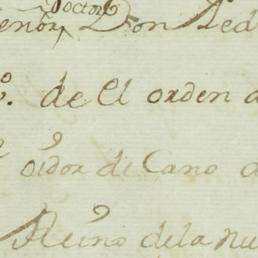 Doctor
Señor Don Ped
º. de el orden d
oidor de Cano d
Reino dela nu